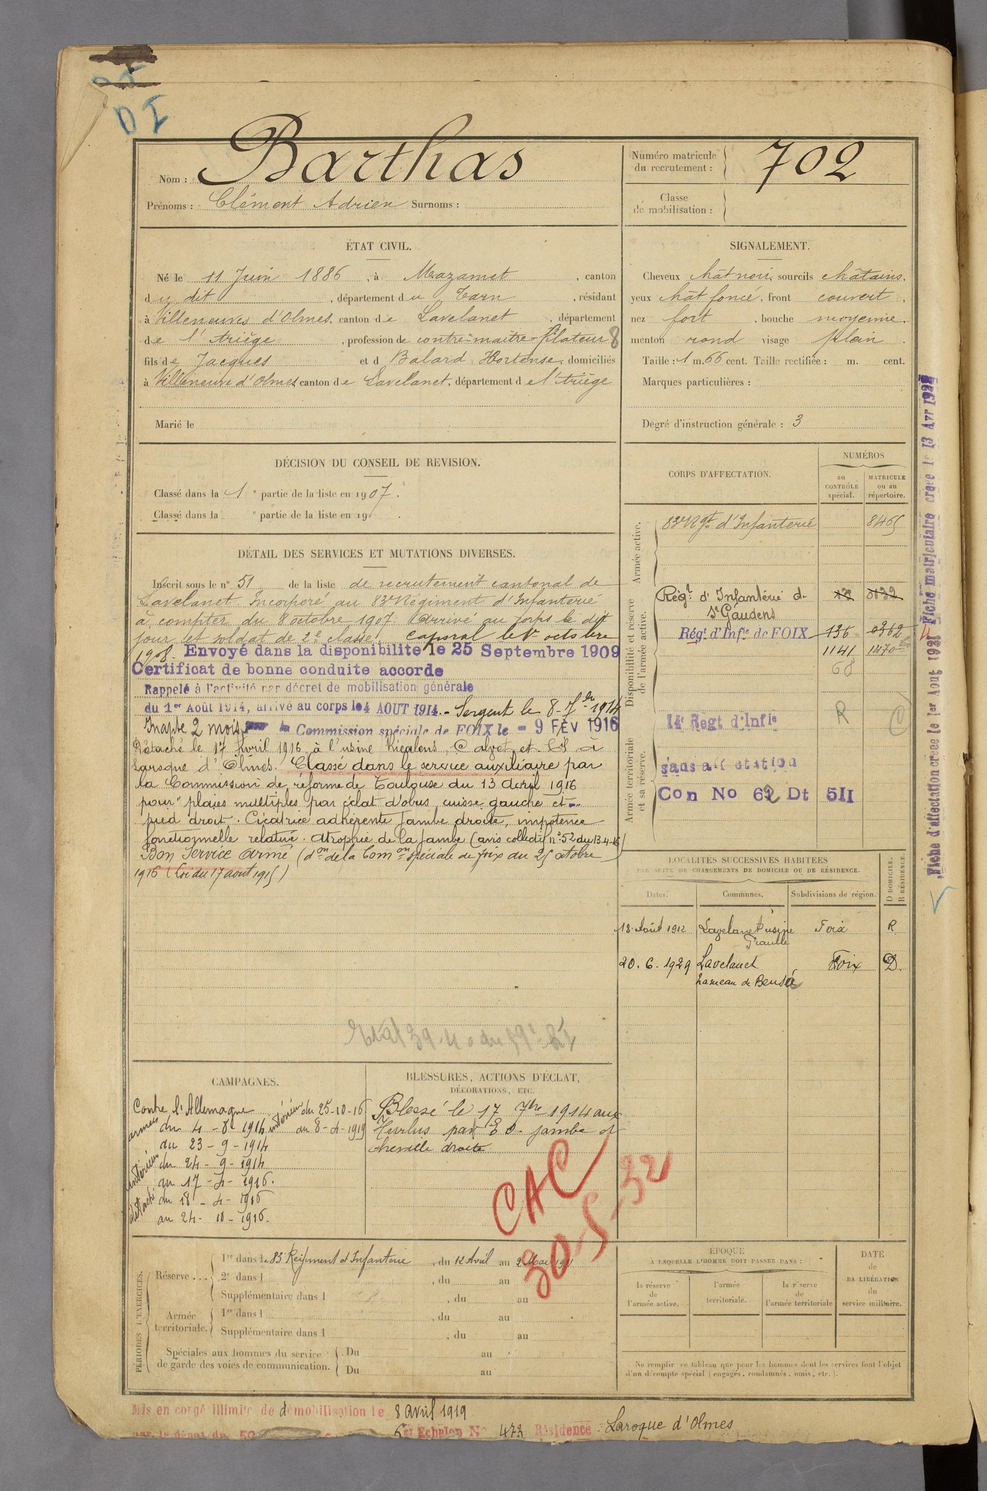 DI
Nom : Barthas
Prénoms : Clément Adrien Surnoms :
Numéro matricule du recrutement : 702
Classe de mobilisation :
ÉTAT CIVIL.
Né le 11 Juin 1886, à Mazamet, canton
du dit, département du Tarn, résidant
à Villeneuve d'Olmes, canton de Lavelanet, département
de l'Ariège, profession de contre-maître filateur 8
fils de Jacques et d Balard Hortense, domiciliés
à Villeneuve d'Olmes canton de Lavelanet, département de l'Ariège
Marié le
SIGNALEMENT.
Cheveux chât noir, sourcils châtains,
yeux chât foncé, front couvert,
nez fort, bouche moyenne,
menton rond visage plein
Taille : 1 m. 66 cent. Taille rectifiée : m. cent.
Marques particulières :
Degré d'instruction générale : 3
DÉCISION DU CONSEIL DE REVISION.
Classé dans la 1e partie de la liste en 1907.
Classé dans la e partie de la liste en 19 .
DÉTAIL DES SERVICES ET MUTATIONS DIVERSES.
Inscrit sous le n° 51 de la liste de recrutement cantonal de
Lavelanet. Incorporé au 83e Régiment d'Infanterie
à compter du 8 octobre 1907. Arrivé au corps le dit
jour et soldat de 2e classe. Caporal le 1er octobre
1908. Envoyé dans la disponibilité le 25 Septembre 1909
Certificat de bonne conduite accordé
Rappelé à l'activité par décret de mobilisation générale
du 1er Août 1914, arrivé au corps le 4 AOUT 1914. Sergent le 8-7bre 1914
Inapte 2 mois Commission spéciale de FOIX le 9 FÉV 1916
Détaché le 17 Avril 1916 à l'usine Ricalens, et Cie à
Laroque d'Olmes. Classé dans le service auxiliaire par
la Commission de réforme de Toulouse du 13 Avril 1916
pour "plaies multiples par éclat d'obus, cuisse gauche et
pied droit. Cicatrice adhérente jambe droite, impotence
fonctionnelle relative. Atrophie de la jambe (avis collectif n° 52 du 13-4-16)
Bon Service Armé (don de la Comon Spéciale de Foix du 25 octobre
1916 (Loi du 17 août 1915)
CORPS D'AFFECTATION.
NUMÉROS
au CONTRÔLE spécial.
MATRICULE ou au répertoire.
Armée active.
83e Rgt d'Infanterie 8465
Disponibilité et réserve de l'armée active.
Régt d'Infanterie de St Gaudens
Régt d'Infie de FOIX 136
1141 1470
68
Armée territoriale et sa réserve.
14e Regt d'Infie R
sans affectation
Con No 62 Dt 511
Fiche d'affectation créée le 1er Aout 1931 Fiche matriculaire créée le 13 Avr 1938
LOCALITÉS SUCCESSIVES HABITÉES
PAR SUITE DE CHANGEMENTS DE DOMICILE OU DE RÉSIDENCE.
Dates. Communes. Subdivisions de région. D DOMICILE. R RÉSIDENCE.
18 Août 1912 Lavelanet usine Foix R.
20. 6. 1929 Lavelanet Foix D.
hameau de
CAMPAGNES.
Contre l'Allemagne
armées du 4-8-1914
au 23-9-1914
intérieur du 24-9-1914
au 17-4-1916.
détaché du 18-4-1916
au 24-10-1916.
intérieur du 25-10-16
au 8-4-1919
BLESSURES, ACTIONS D'ÉCLAT,
DÉCORATIONS, ETC.
Blessé le 17 7bre 1914 aux
Hurlus par E O. jambe et
cheville droite
CAC
30-5-32
PÉRIODES D'EXERCICES.
Réserve... 1re dans le 83 Régiment d'Infanterie, du 12 Avril au 2 Mai 1911
2e dans l , du au
Supplémentaire dans l , du au
Armée territoriale. 1re dans l , du au
Supplémentaire dans l , du au
Spéciales aux hommes du service de garde des voies de communication. Du au
Du au
ÉPOQUE
À LAQUELLE L'HOMME DOIT PASSER DANS :
la réserve de l'armée active.
l'armée territoriale.
la réserve de l'armée territoriale
DATE DE LA LIBÉRATION du service militaire.
Ne remplir ce tableau que pour les hommes dont les services font l'objet
d'un décompte spécial (engagés, condamnés, omis, etc.).
Mis en congé illimité de démobilisation le 8 avril 1919
Echelon N° 473 Résidence Laroque d'Olmes